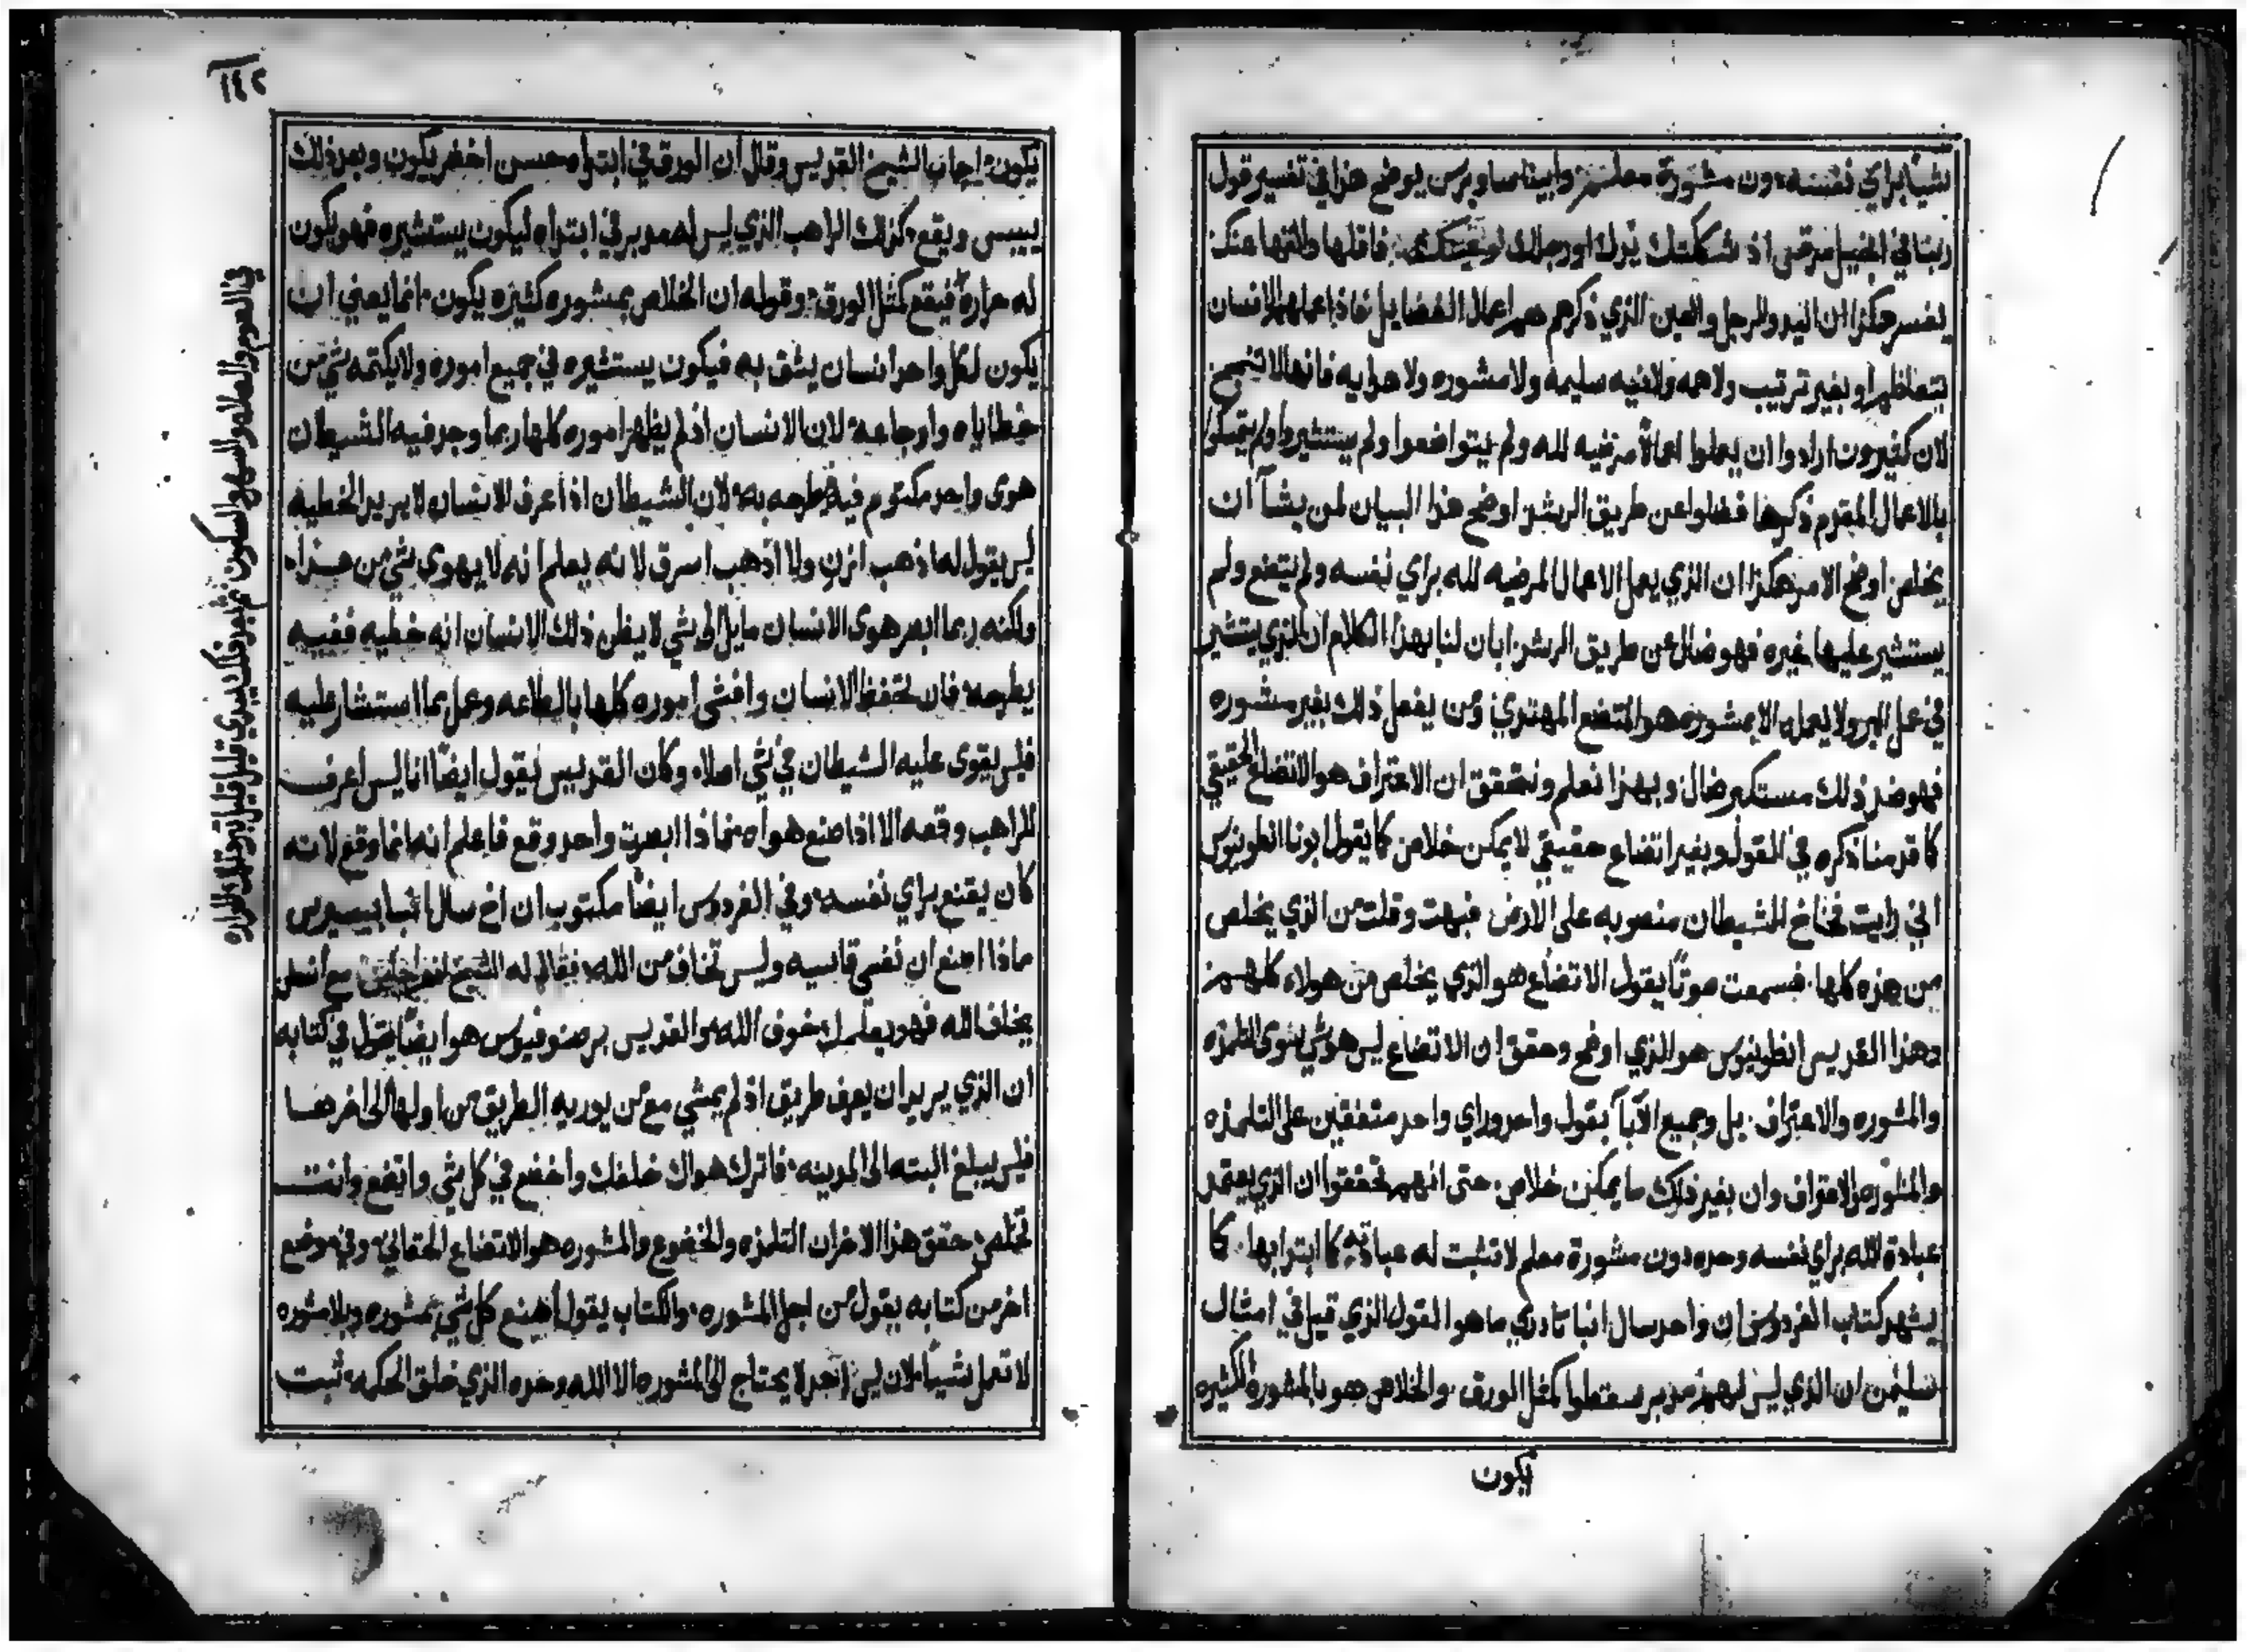 شياً براي نفسه دون مشورة معلمهم وابينا ساويرس يوضح هذا في تفسير قول
ربنا في انجيل مرقس اذ شككتك يدك او رجلك او عينك فاقلعها والقها عنك
يفسر هكذا ان اليد والرجل والعين الذي ذكرهم هم اعمال الفضايل فاذا عملهم الانسان
بتعاظم او بغير ترتيب ولا همه ولا نيه سليمة ولا مشوره ولا هدايه فانها لا تنجح
لان كثيرون ارادوا ان يعملوا اعمالاً مرضيه لله ولم يتواضعوا ولم يستشيروا ولم يتمسكوا
بالاعمال المقدم ذكرها فضلوا عن طريق الرشد اوضح هذا البيان لمن يشآ ان
يخلص اوضح الامر هكذا ان الذي يعمل الاعمال المرضيه لله براي نفسه ولم يتضع ولم
يستشير عليها غيره فهو ضال عن طريق الرشد ابان لنا بهذا الكلام ان الذي يستشير
في عمل البر ولا يعمله الا بمشوره هو المتضع المهتدي ومن يفعل ذلك بغير مشوره
فهو ضد ذلك مستكبر ضال وبهذا نعلم ونتحقق ان الاعتراف هو الاتضاع الحقيقي
كما قدمنا ذكره في القول وبغير اتضاع حقيقي لا يمكن خلاص كما يقول ابونا انطونيوس
اني رايت فخاخ الشيطان منصوبه على الارض فبهت وقلت من الذي يخلص
من هذه كلها فسمعت صوتاً يقول الاتضاع هو الذي يخلص من هولاء كلهم
وهذا القديس انطونيوس هو الذي اوضح وحقق ان الاتضاع ليس هو شي سوى التلمذه
والمشوره والاعتراف بل وجميع الآبآ بقول واحد وراي واحد متفقين على التلمذه
والمشوره والاعتراف وان بغير ذلك ما يمكن خلاص حتى انهم تحققوا ان الذي يعتمد
عبادة الله براي نفسه وحده دون مشورة معلم لا تثبت له عبادته كما ابتدا بها كما
يشهد كتاب الفردوس ان واحد سال انبا تادري ما هو القول الذي قيل في امثال
سليمن ان الذي ليس لهم مدبر سقطوا كمثل الورق والخلاص هو بالمشوره الكثيره
يكون
١٤٢
يكون اجاب الشيخ القديس وقال ان الورق في ابتداه حسن اخضر يكون وبعد ذلك
ييبس ويقع كذلك الراهب الذي ليس له مدبر في ابتداه ليكون يستشيره فهو يكون
له حرارة فيقع كمثل الورق وقوله ان الخلاص بمشوره كثيره يكون انما يعني ان
يكون لكل واحد انسان يثق به فيكون يستشيره في جميع اموره ولا يكتمه شي من
خطاياه واوجاعه لان الانسان اذ لم يظهر اموره كلها ربما وجد فيه الشيطان
هوى واحد مكتوم فيه فيطرحه به لان الشيطان اذا عرف الانسان لا يريد الخطيه
ليس يقول له اذهب ازن ولا اذهب اسرق لانه يعلم انه لا يهوى شي من هذا
ولكنه ربما ابصر هوى الانسان مايل الى شي لا يظن ذلك الانسان انه خطيه ففيه
يطرحه فان تحفظ الانسان وافشى اموره كلها بالطاعه وعمل بما استشار عليه
فليس يقوى عليه الشيطان في شي اصلا وكان القديس يقول ايضاً انا ليس اعرف
للراهب وقعه الا اذا صنع هواه فاذا ابصرت واحد وقع فاعلم انه انما وقع لانه
كان يقنع براي نفسه وفي الفردوس ايضاً مكتوب ان اخ سال انبا بيسيرس
ماذا اصنع ان نفسي قاسيه وليس تخاف من الله فقال له الشيخ مع انسان
يخاف الله فهو يعلمك خوف الله والقديس برصنوفيوس هو ايضاً يقول في كتابه
ان الذي يريد ان يعرف طريق اذ لم يمشي مع من يوريه الطريق من اولها الى اخرها
فليس يبلغ البته الى المدينه فاترك هواك خلفك واخضع في كل شي واتضع وانت
تخلص حقق هذا الاخر ان التلمذه والخضوع والمشوره هو الاتضاع الحقاني وفي موضع
اخر من كتابه يقول من اجل المشوره والكتاب يقول اصنع كل شي بمشوره وبلا مشوره
لا تعمل شياً لان ليس احد لا يحتاج الى المشوره الا الله وحده الذي خلق الحكمه ثبت
في الصوم والصلاه والسهر والسكون